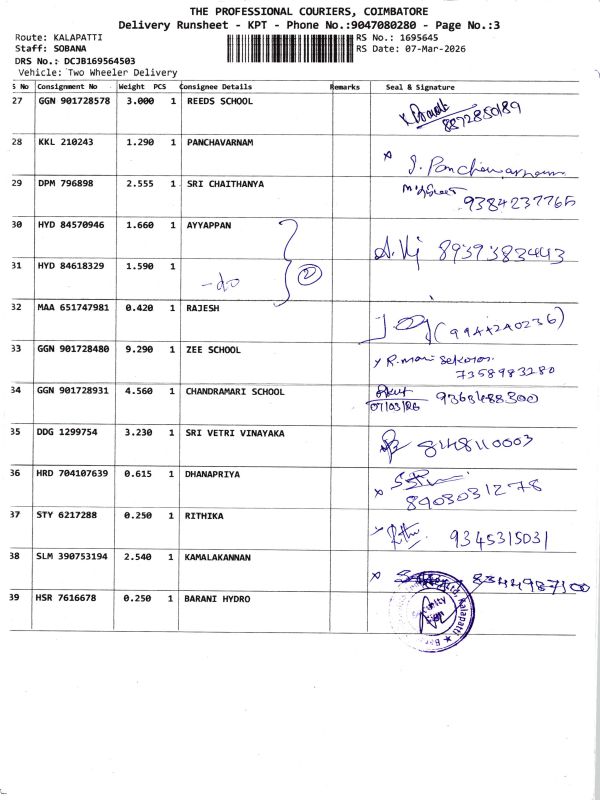 THE PROFESSIONAL COURIERS, COIMBATORE
Delivery Runsheet - KPT - Phone No.:9047080280 - Page No.:3
Route: KALAPATTI
RS No.: 1695645
Staff: SOBANA
RS Date: 07-Mar-2026
DRS No.: DCJB169564503
Vehicle: Two Wheeler Delivery
S No Consignment No Weight PCS Consignee Details Remarks Seal & Signature
27 GGN 901728578 3.000 1 REEDS SCHOOL
28 KKL 210243 1.290 1 PANCHAVARNAM
29 DPM 796898 2.555 1 SRI CHAITHANYA
9384237765
30 HYD 84570946 1.660 1 AYYAPPAN
8939383443
31 HYD 84618329 1.590 1
-do 2
32 MAA 651747981 0.420 1 RAJESH
(9944240236)
33 GGN 901728480 9.290 1 ZEE SCHOOL
7358983280
34 GGN 901728931 4.560 1 CHANDRAMARI SCHOOL
07/03/26 9363488300
35 DDG 1299754 3.230 1 SRI VETRI VINAYAKA
8148110003
36 HRD 704107639 0.615 1 DHANAPRIYA
8903031278
37 STY 6217288 0.250 1 RITHIKA
9345315031
38 SLM 390753194 2.540 1 KAMALAKANNAN
8344987100
39 HSR 7616678 0.250 1 BARANI HYDRO
Kalapatti